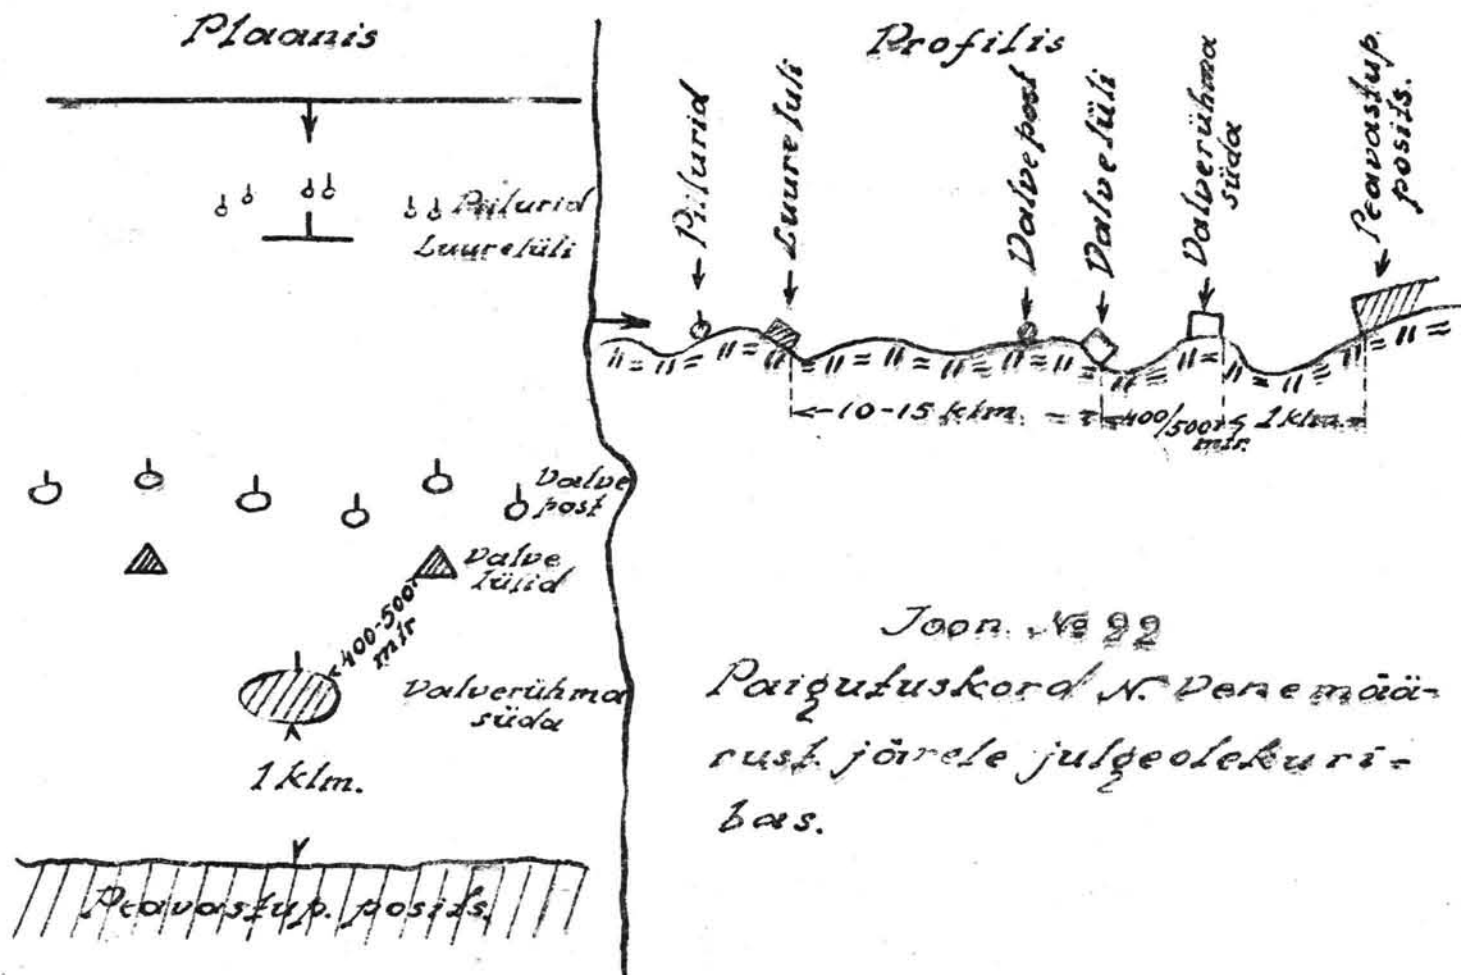 Plaanis
Piilurid
Luurelüli
Valve
post
Valve
lülid
400-500
mtr
Valverühma
süda
1 klm.
Peavastup. posits.
Profilis
Piilurid
Luurelüli
Valvepost
Valvelüli
Valverühma
süda
Peavastup.
posits.
10-15 klm.
400/500
mtr.
1 klm.
Joon. № 22
Paigutuskord N. Venemää-
rust. järele julgeolekuri-
bas.